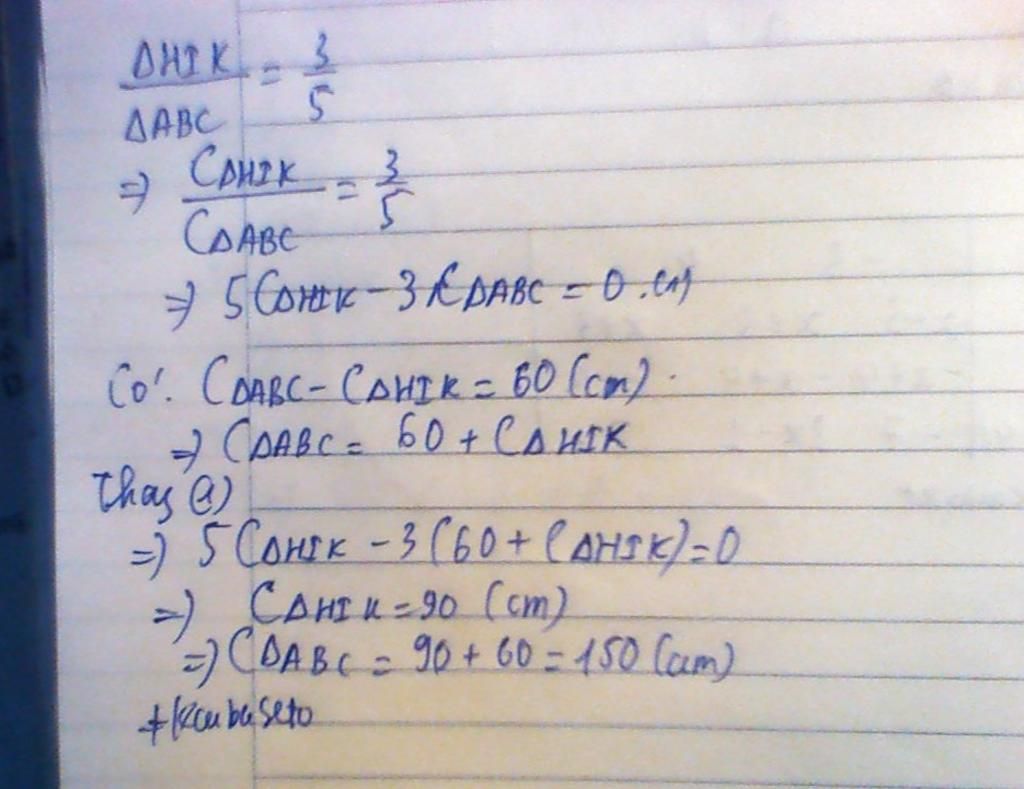 ΔHIK/ΔABC = 3/5
=> CΔHIK/CΔABC = 3/5
=> 5CΔHIK - 3CΔABC = 0 .(1)
Có: CΔABC - CΔHIK = 60 (cm).
=> CΔABC = 60 + CΔHIK
Thay (1)
=> 5CΔHIK - 3(60 + CΔHIK) = 0
=> CΔHIK = 90 (cm)
=> CΔABC = 90 + 60 = 150 (cm)